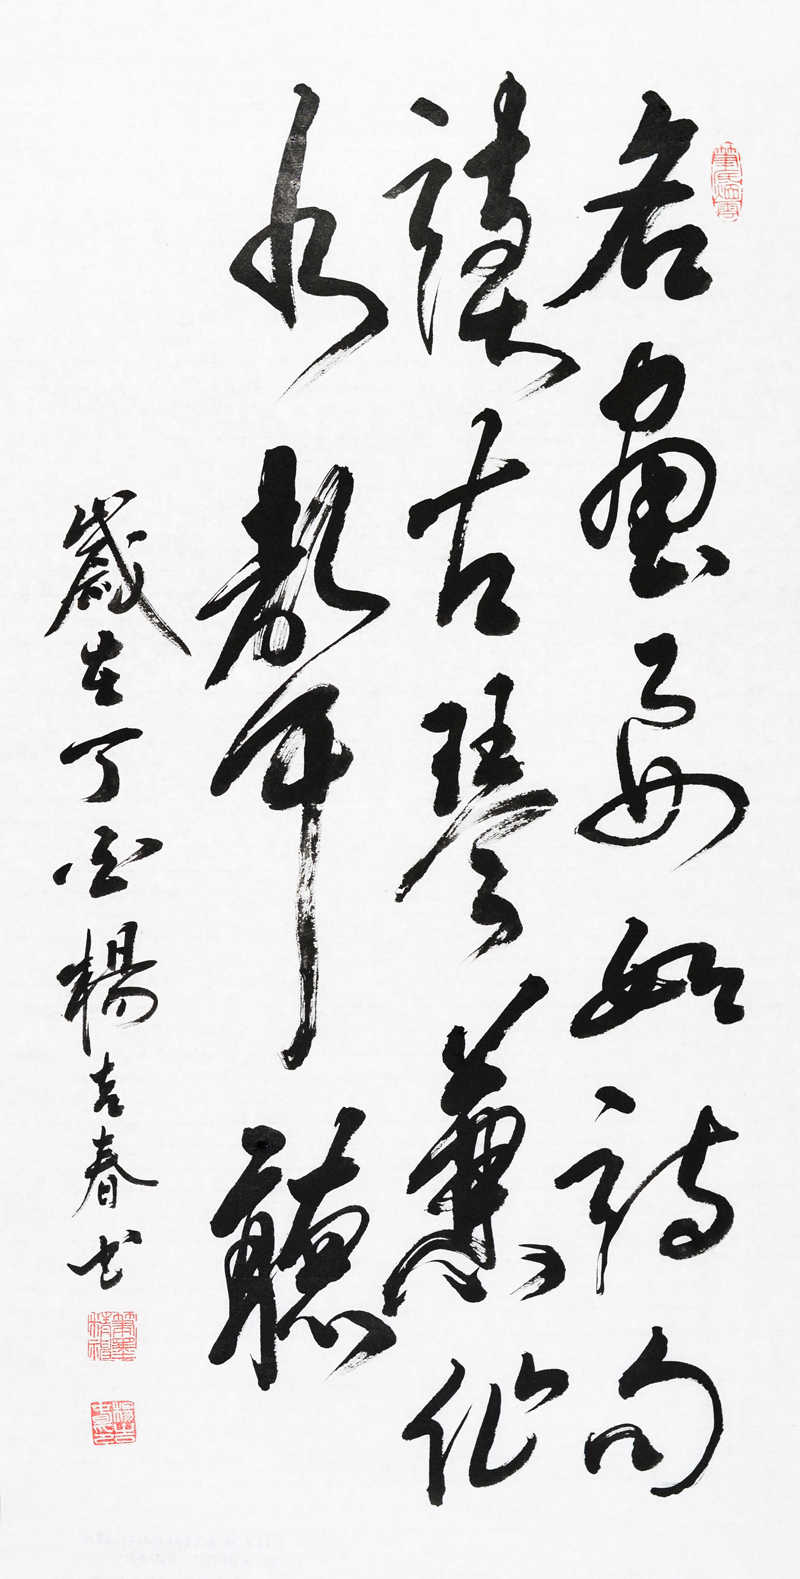 名畫要如詩句
讀古琴兼作
水聲聽
歲在丁酉楊吉春書